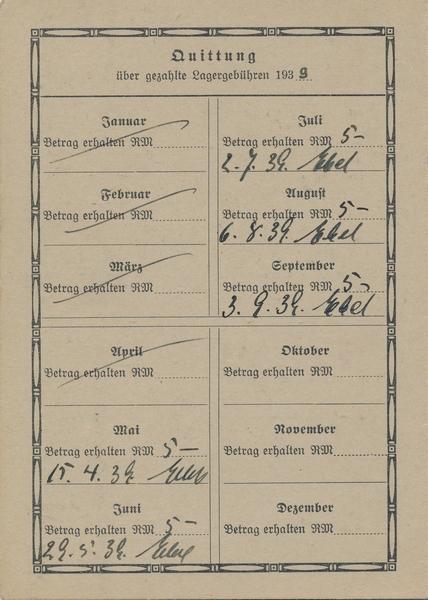 Quittung
über gezahlte Lagergebühren 193 9
Januar
Betrag erhalten RM
Februar
Betrag erhalten RM
März
Betrag erhalten RM
April
Betrag erhalten RM
Mai
Betrag erhalten RM 5-
15. 4. 39. Ebel
Juni
Betrag erhalten RM 5-
29. 5. 39. Ebel
Juli
Betrag erhalten RM 5-
2. 7. 39. Ebel
August
Betrag erhalten RM 5-
6. 8. 39. Ebel
September
Betrag erhalten RM 5-
3. 9. 39. Ebel
Oktober
Betrag erhalten RM
November
Betrag erhalten RM
Dezember
Betrag erhalten RM